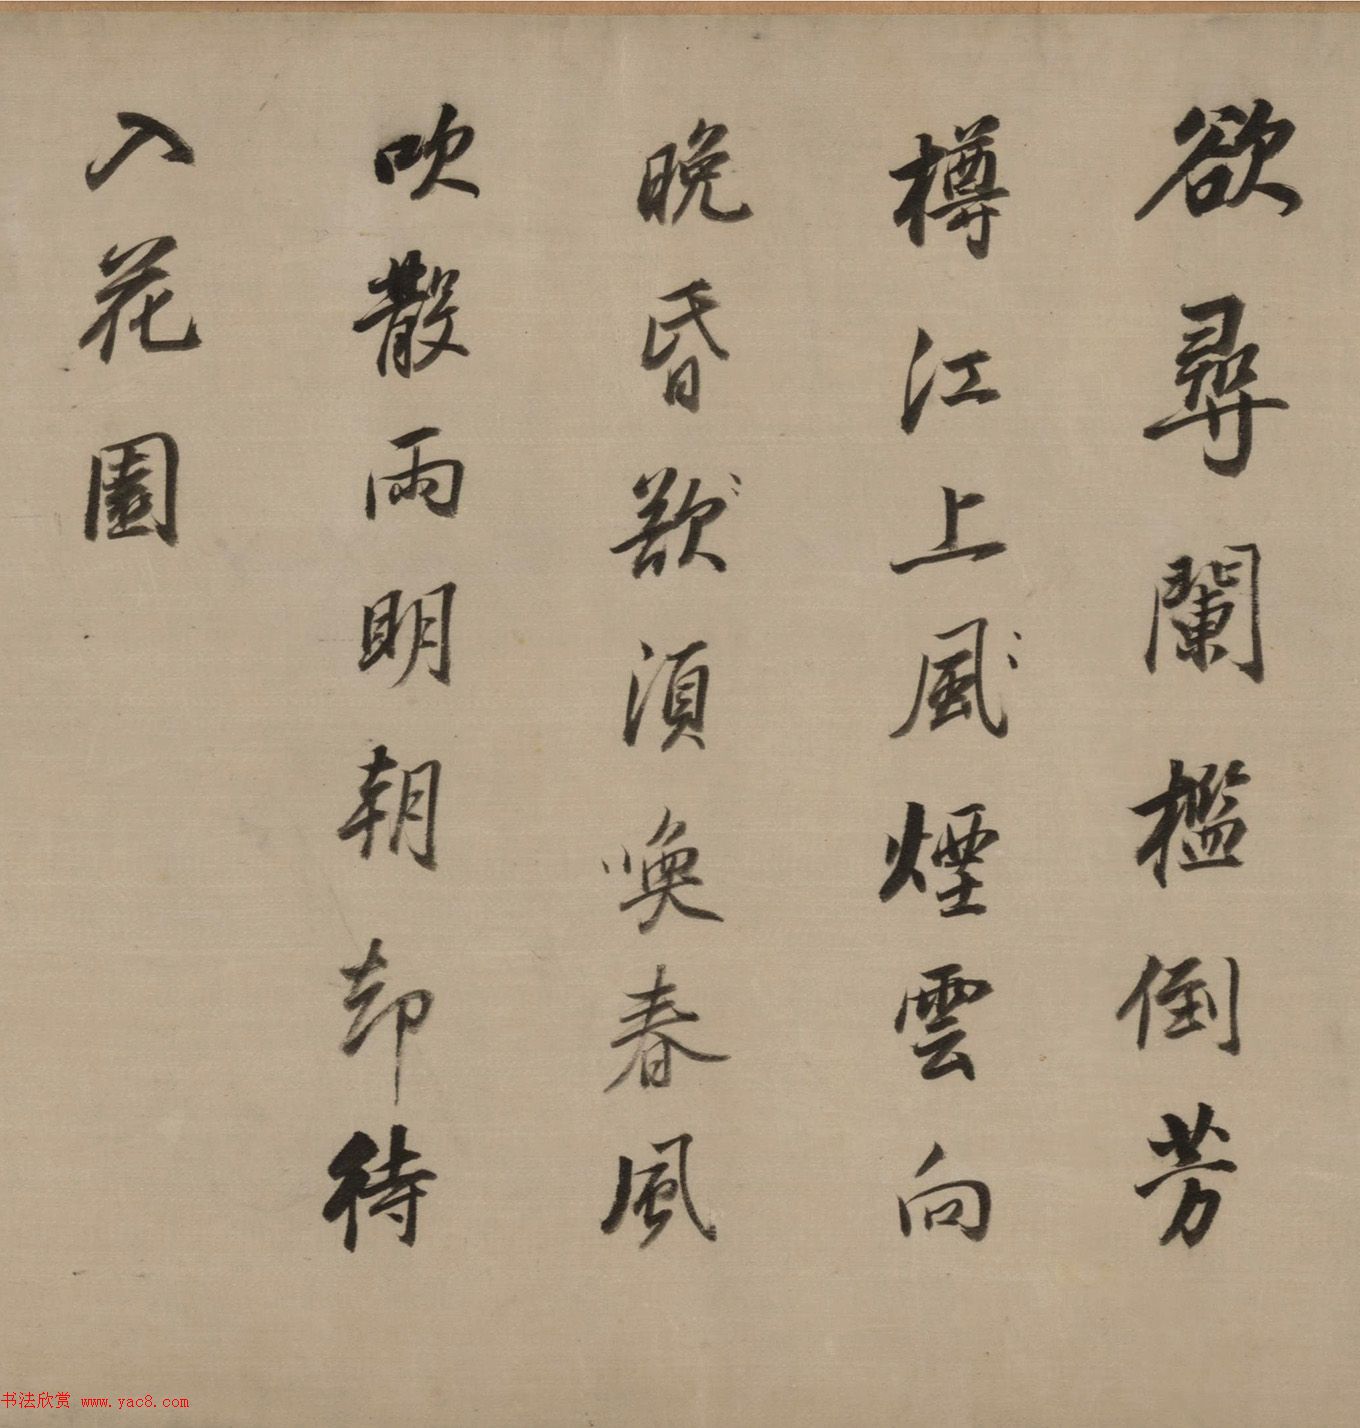 欲尋闌檻倒芳
樽江上風煙雲向
晚昏歡須喚春風
吹散雨明朝却待
入花園
书法欣赏 www.yac8.com